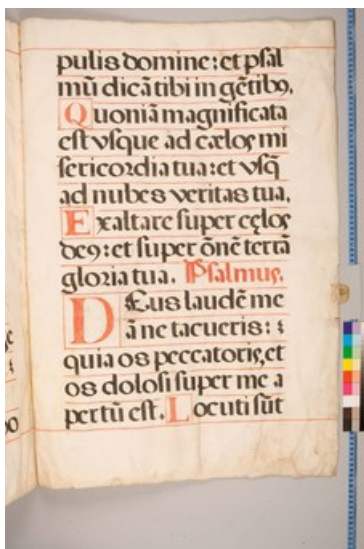 pulis domine: et psal
mū dicā tibi in gētibꝰ.
Quoniā magnificata
est vsque ad cęlos mi
sericordia tua: et vsq̄
ad nubes veritas tua.
Exaltare super cęlos
deꝰ: et super ōnē terrā
gloria tua. Psalmus.
DEus laudē me
ā ne tacueris: ⁊
quia os peccatoris, et
os dolosi super me a
pertū est. Locuti sūt